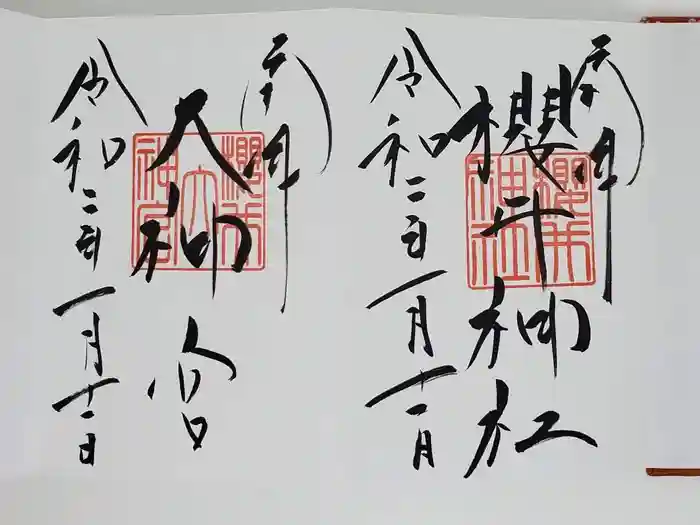 櫻井神社
櫻井
神社
令和二年一月十一日
大神宮
櫻井
大
神宮
令和二年一月十一日